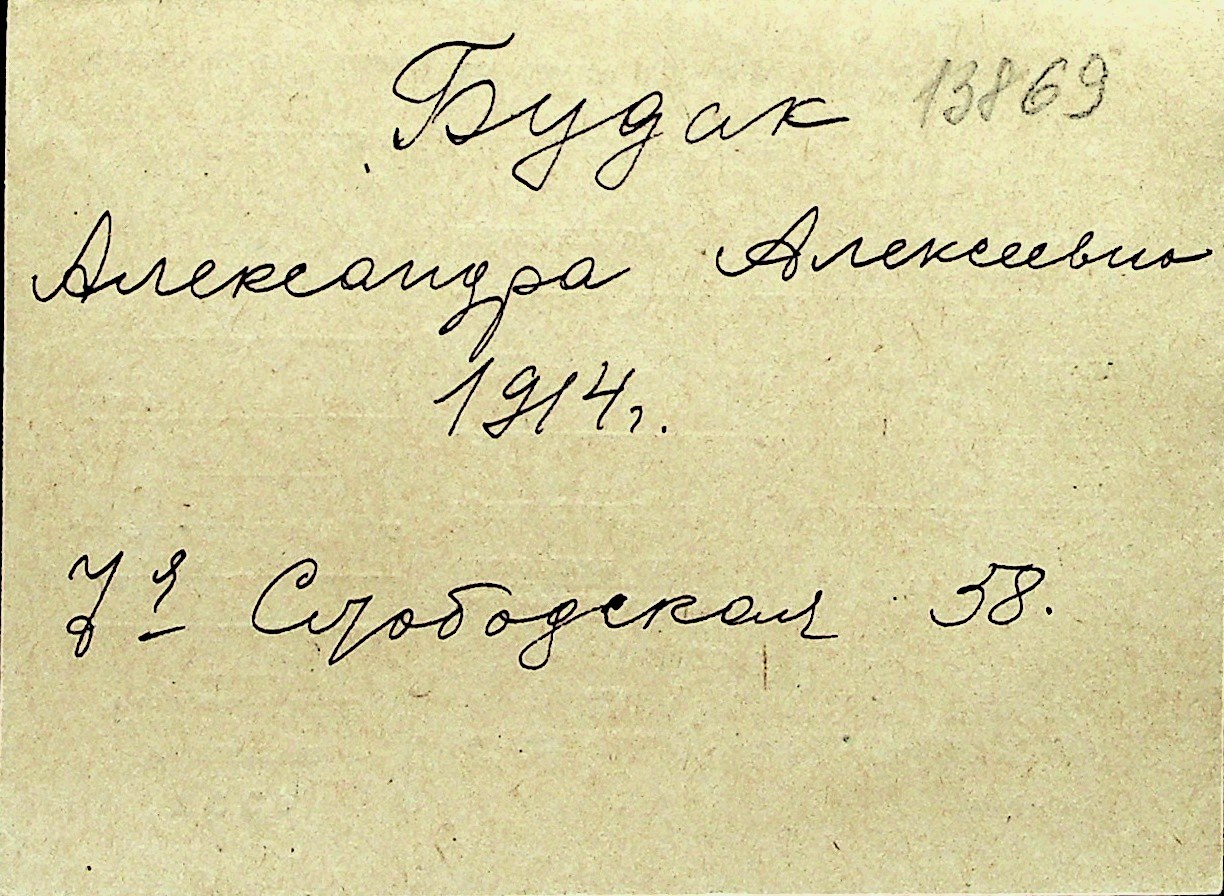 Будак 13869
Александра Алексеевна
1914г.
7я Слободская 58.